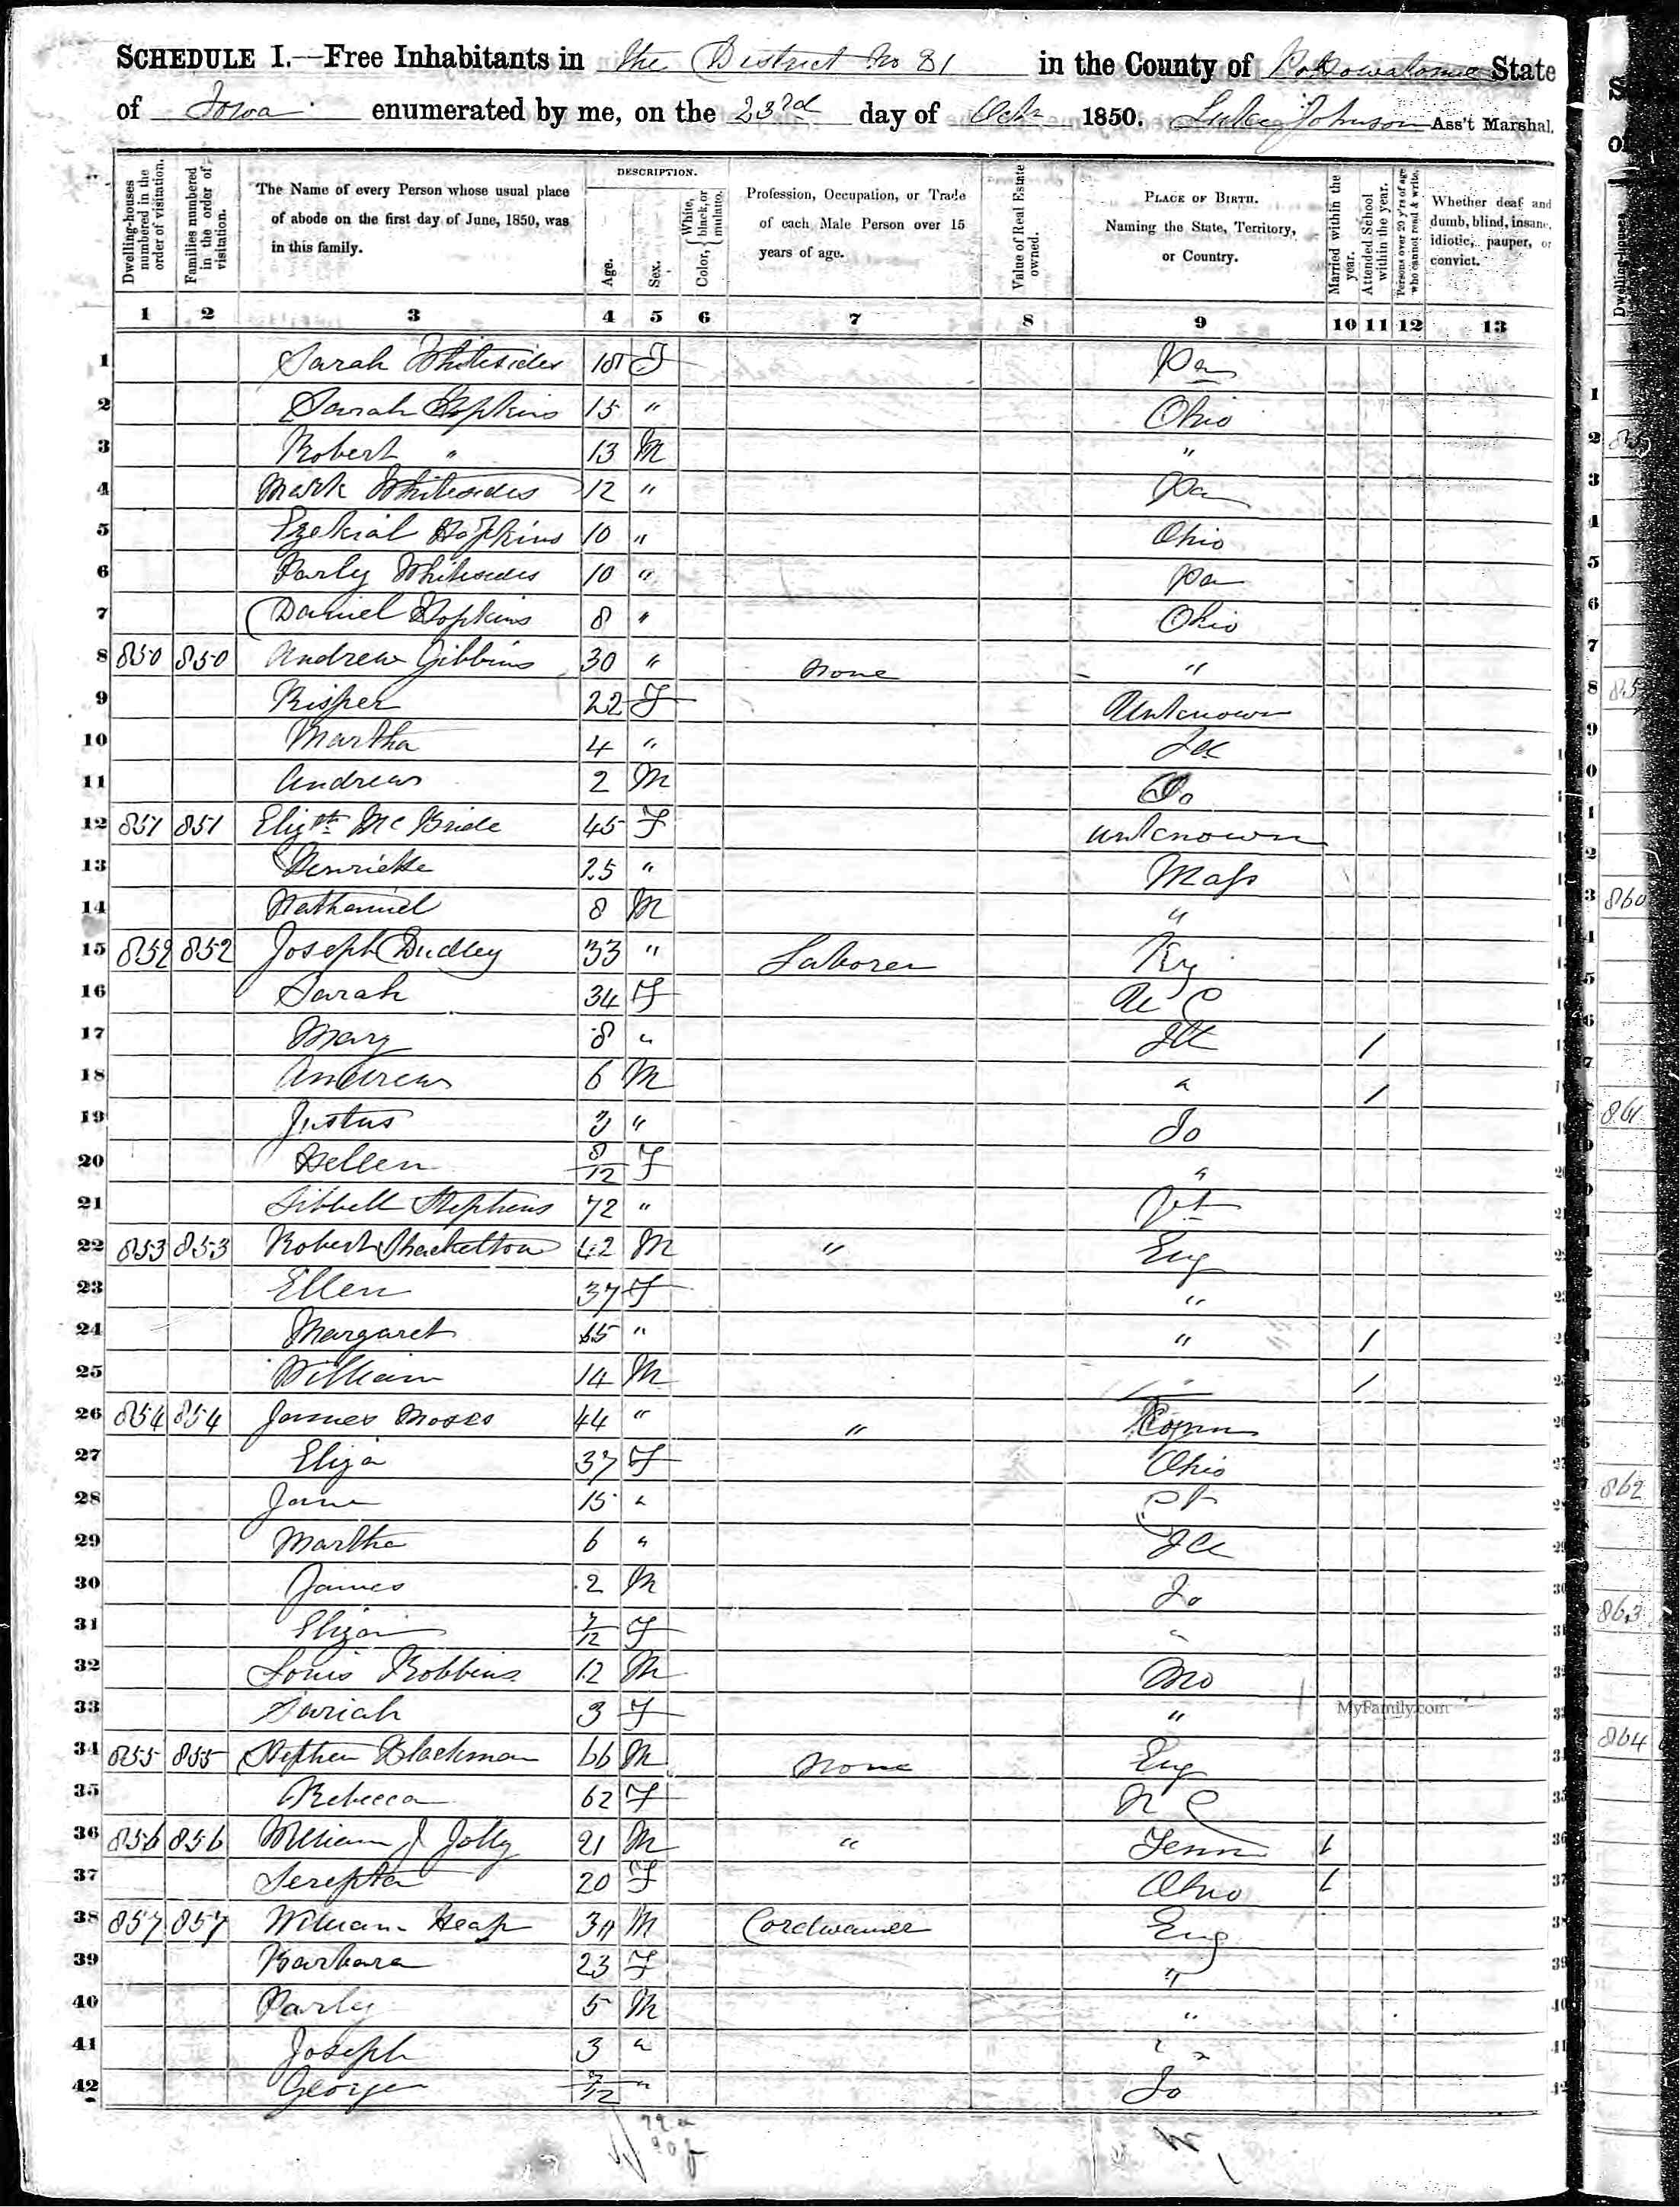 SCHEDULE I.—Free Inhabitants in the District No 21 in the County of Pottowatomie State
of Iowa enumerated by me, on the 23rd day of Octr 1850. Johnson Ass't Marshal.
Dwelling-houses numbered in the order of visitation.
Families numbered in the order of visitation.
The Name of every Person whose usual place of abode on the first day of June, 1850, was in this family.
DESCRIPTION.
Age.
Sex.
Color, { White, black, or mulatto.
Profession, Occupation, or Trade of each Male Person over 15 years of age.
Value of Real Estate owned.
PLACE OF BIRTH. Naming the State, Territory, or Country.
Married within the year.
Attended School within the year.
Persons over 20 y'rs of age who cannot read & write.
Whether deaf and dumb, blind, insane, idiotic, pauper, or convict.
1 2 3 4 5 6 7 8 9 10 11 12 13
1 Sarah Whitesides F Pa
2 Sarah Hopkins 15 " Ohio
3 Robert " 13 M "
4 Mark Whitesides 12 " Pa
5 Ezekial Hopkins 10 " Ohio
6 Parly Whitesides 10 " Pa
7 Daniel Hopkins 8 " Ohio
8 850 850 Andrew Gibbins 30 " None "
9 Risper 22 F Unknown
10 Martha 4 " Ill
11 Andrew 2 M Io
12 851 851 Elizth Mc Bride 45 F unknown
13 Henriette 25 " Mass
14 Nathaniel 8 M "
15 852 852 Joseph Dudley 33 " Laborer Ky
16 Sarah 34 F N C
17 Mary 8 " Ill /
18 Andrew 6 M " /
19 Justus 3 " Io
20 Hellen 8/12 F "
21 Sibbell Stephens 72 " Vt
22 853 853 Robert Shackelton 42 M " Eng
23 Ellen 37 F "
24 Margaret " " /
25 William 14 M /
26 854 854 James Moses 44 " " Conn
27 Eliza 37 F Ohio
28 Jane 15 "
29 Martha 6 " Ill
30 James 2 M Io
31 Eliza 7/12 F "
32 Louis Robbins 12 M Mo
33 Sariah 3 F "
34 855 855 Stephen Blackman 66 M None Eng
35 Rebecca 62 F N C
36 856 856 William J Jolly 21 M " Tenn 1
37 Serepta 20 F Ohio 1
38 857 857 William Heap M Cordwainer Eng
39 Barbara 23 F "
40 Parley 5 M "
41 Joseph 3 " "
42 George 7/12 " Io
MyFamily.com
860
861
862
863
864